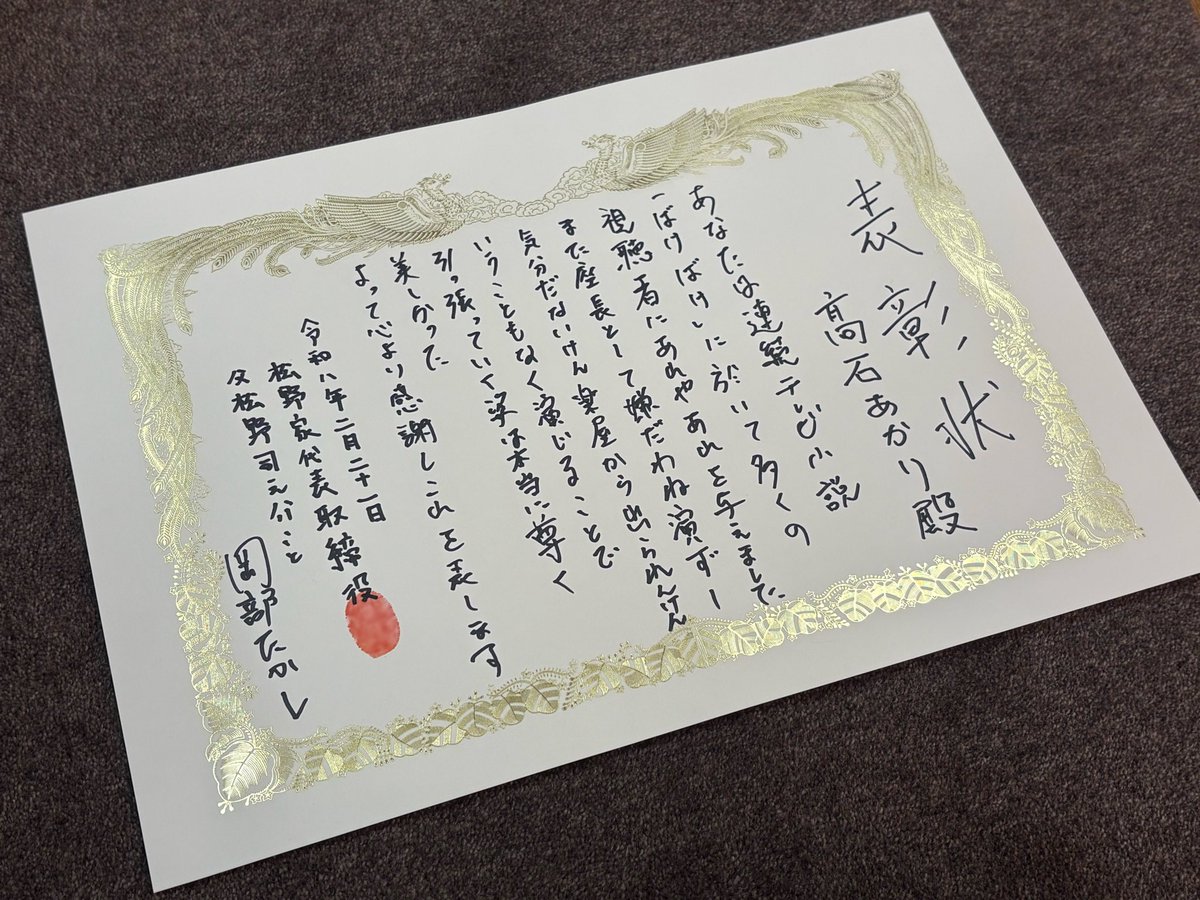 表彰状
髙石あかり殿
あなたは連続テレビ小説
「ばけばけ」に於いて多くの
視聴者にあれやあれを与えました
また座長として嫌だわね演ずー
気分だないけん楽屋から出られんけん
いうこともなく演じることで
引っ張っていく姿は本当に尊く
美しかった
よって心より感謝しこれを表します
令和八年二月二十一日
松野家代表取締役
父松野司之介こと
岡部たかし